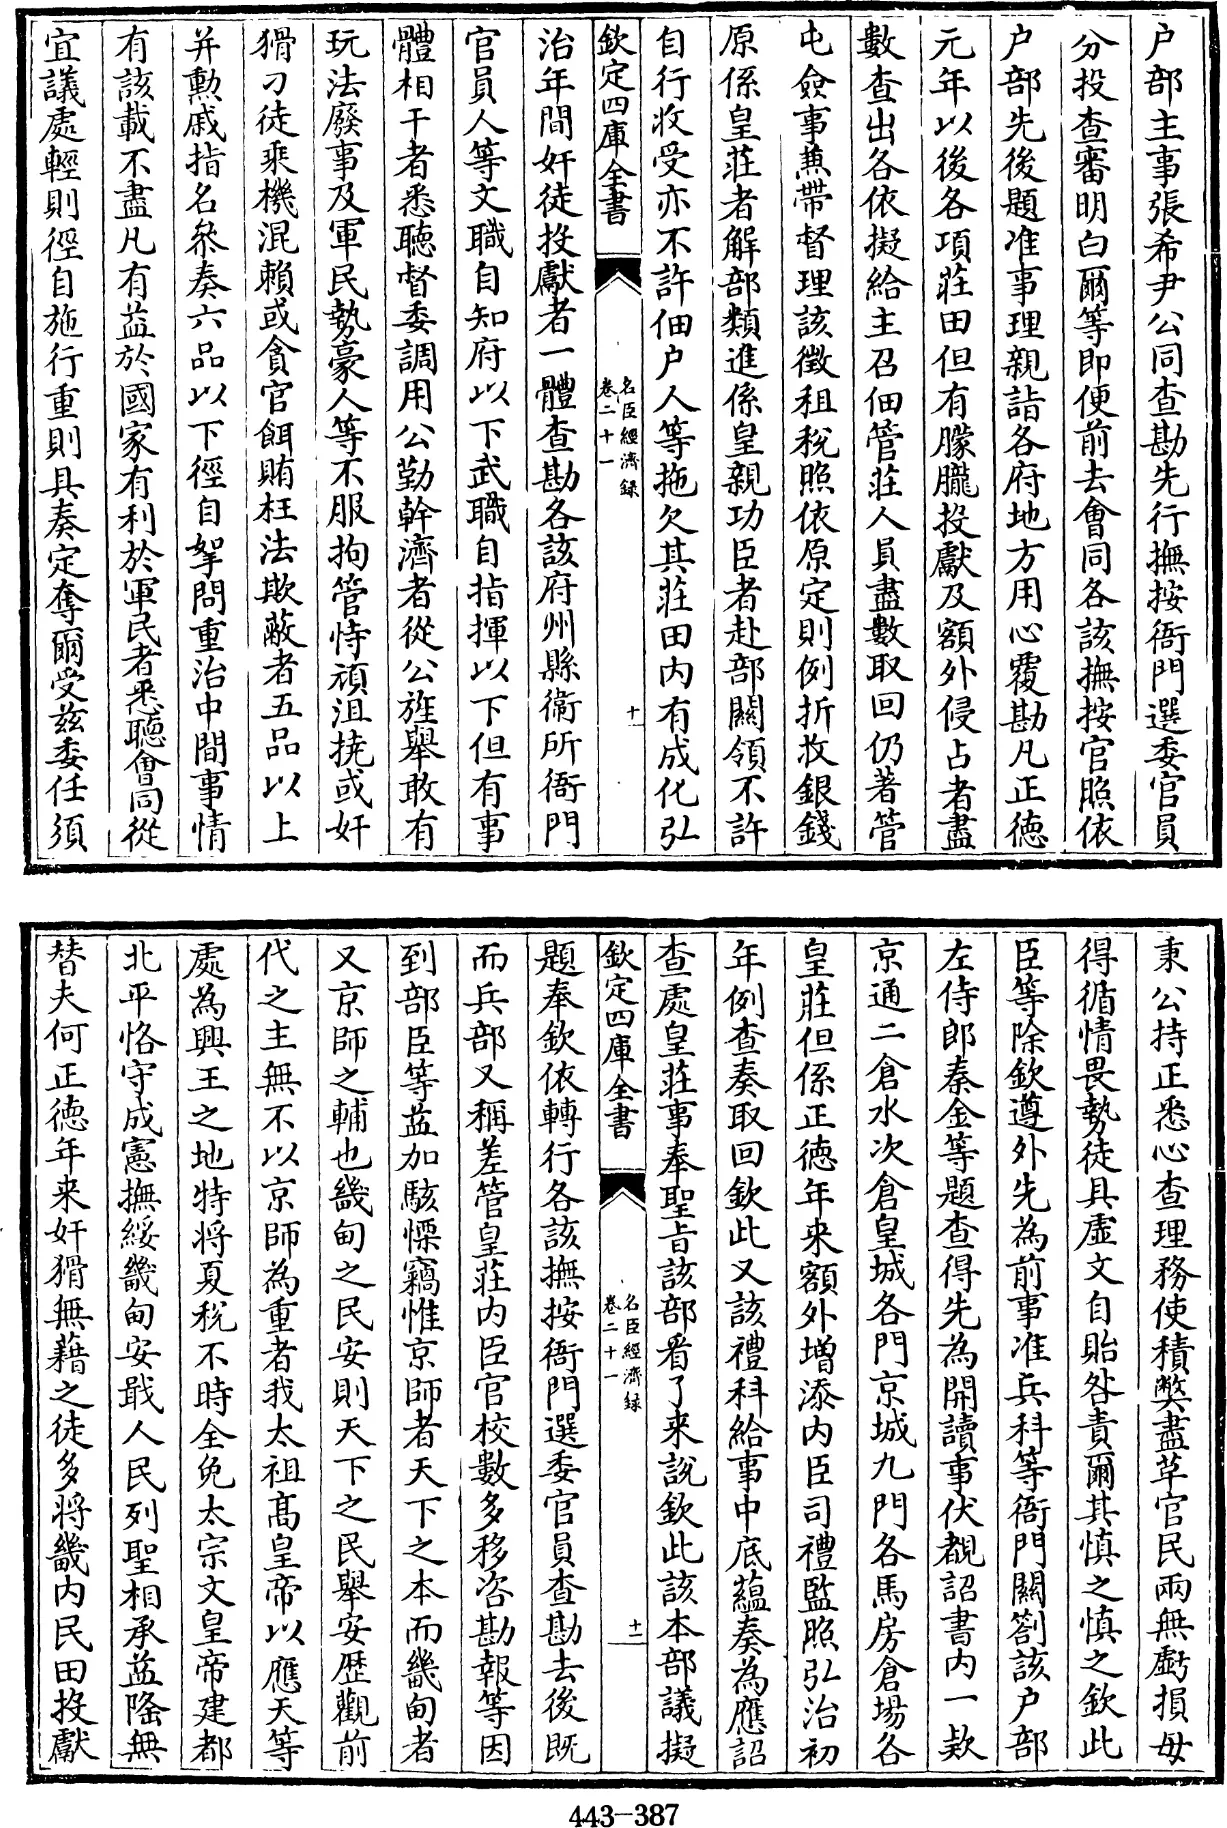 户部主事張希尹公同查勘先行撫按衙門選委官員
分投查審明白爾等即便前去會同各該撫按官照依
户部先後題准事理親詣各府地方用心覆勘凡正德
元年以後各項莊田但有朦朧投獻及額外侵占者盡
數查出各依擬給主召佃管莊人員盡數取回仍著管
屯僉事兼帶督理該徵租税照依原定則例折收銀錢
原係皇莊者解部類進係皇親功臣者赴部關領不許
自行收受亦不許佃户人等拖欠其莊田内有成化弘
欽定四庫全書
名臣經濟録
卷二十一
十
治年間奸徒投獻者一體查勘各該府州縣衛所衙門
官員人等文職自知府以下武職自指揮以下但有事
體相干者悉聽督委調用公勤幹濟者從公旌舉敢有
玩法廢事及軍民勢豪人等不服拘管恃頑沮撓或奸
猾刁徒乘機混賴或貪官餌賄枉法欺蔽者五品以上
并勳戚指名叅奏六品以下徑自拏問重治中間事情
有該載不盡凡有益於國家有利於軍民者悉聽會同從
宜議處輕則徑自施行重則具奏定奪爾受兹委任須
秉公持正悉心查理務使積弊盡革官民兩無虧損毋
得循情畏勢徒具虛文自貽咎責爾其慎之慎之欽此
臣等除欽遵外先為前事准兵科等衙門關劄該户部
左侍郎秦金等題查得先為開讀事伏覩詔書内一款
京通二倉水次倉皇城各門京城九門各馬房倉場各
皇莊但係正德年來額外增添内臣司禮監照弘治初
年例查奏取回欽此又該禮科給事中底藴奏為應詔
查處皇莊事奉聖旨該部看了来說欽此該本部議擬
欽定四庫全書
名臣經濟録
卷二十一
十一
題奉欽依轉行各該撫按衙門選委官員查勘去後既
而兵部又稱差管皇莊内臣官校數多移咨勘報等因
到部臣等益加駭慄竊惟京師者天下之本而畿甸者
又京師之輔也畿甸之民安則天下之民舉安歴觀前
代之主無不以京師為重者我太祖髙皇帝以應天等
處為興王之地特将夏税不時全免太宗文皇帝建都
北平恪守成憲撫綏畿甸安戢人民列聖相承益隆無
替夫何正德年来奸猾無藉之徒多将畿内民田投獻
443-387